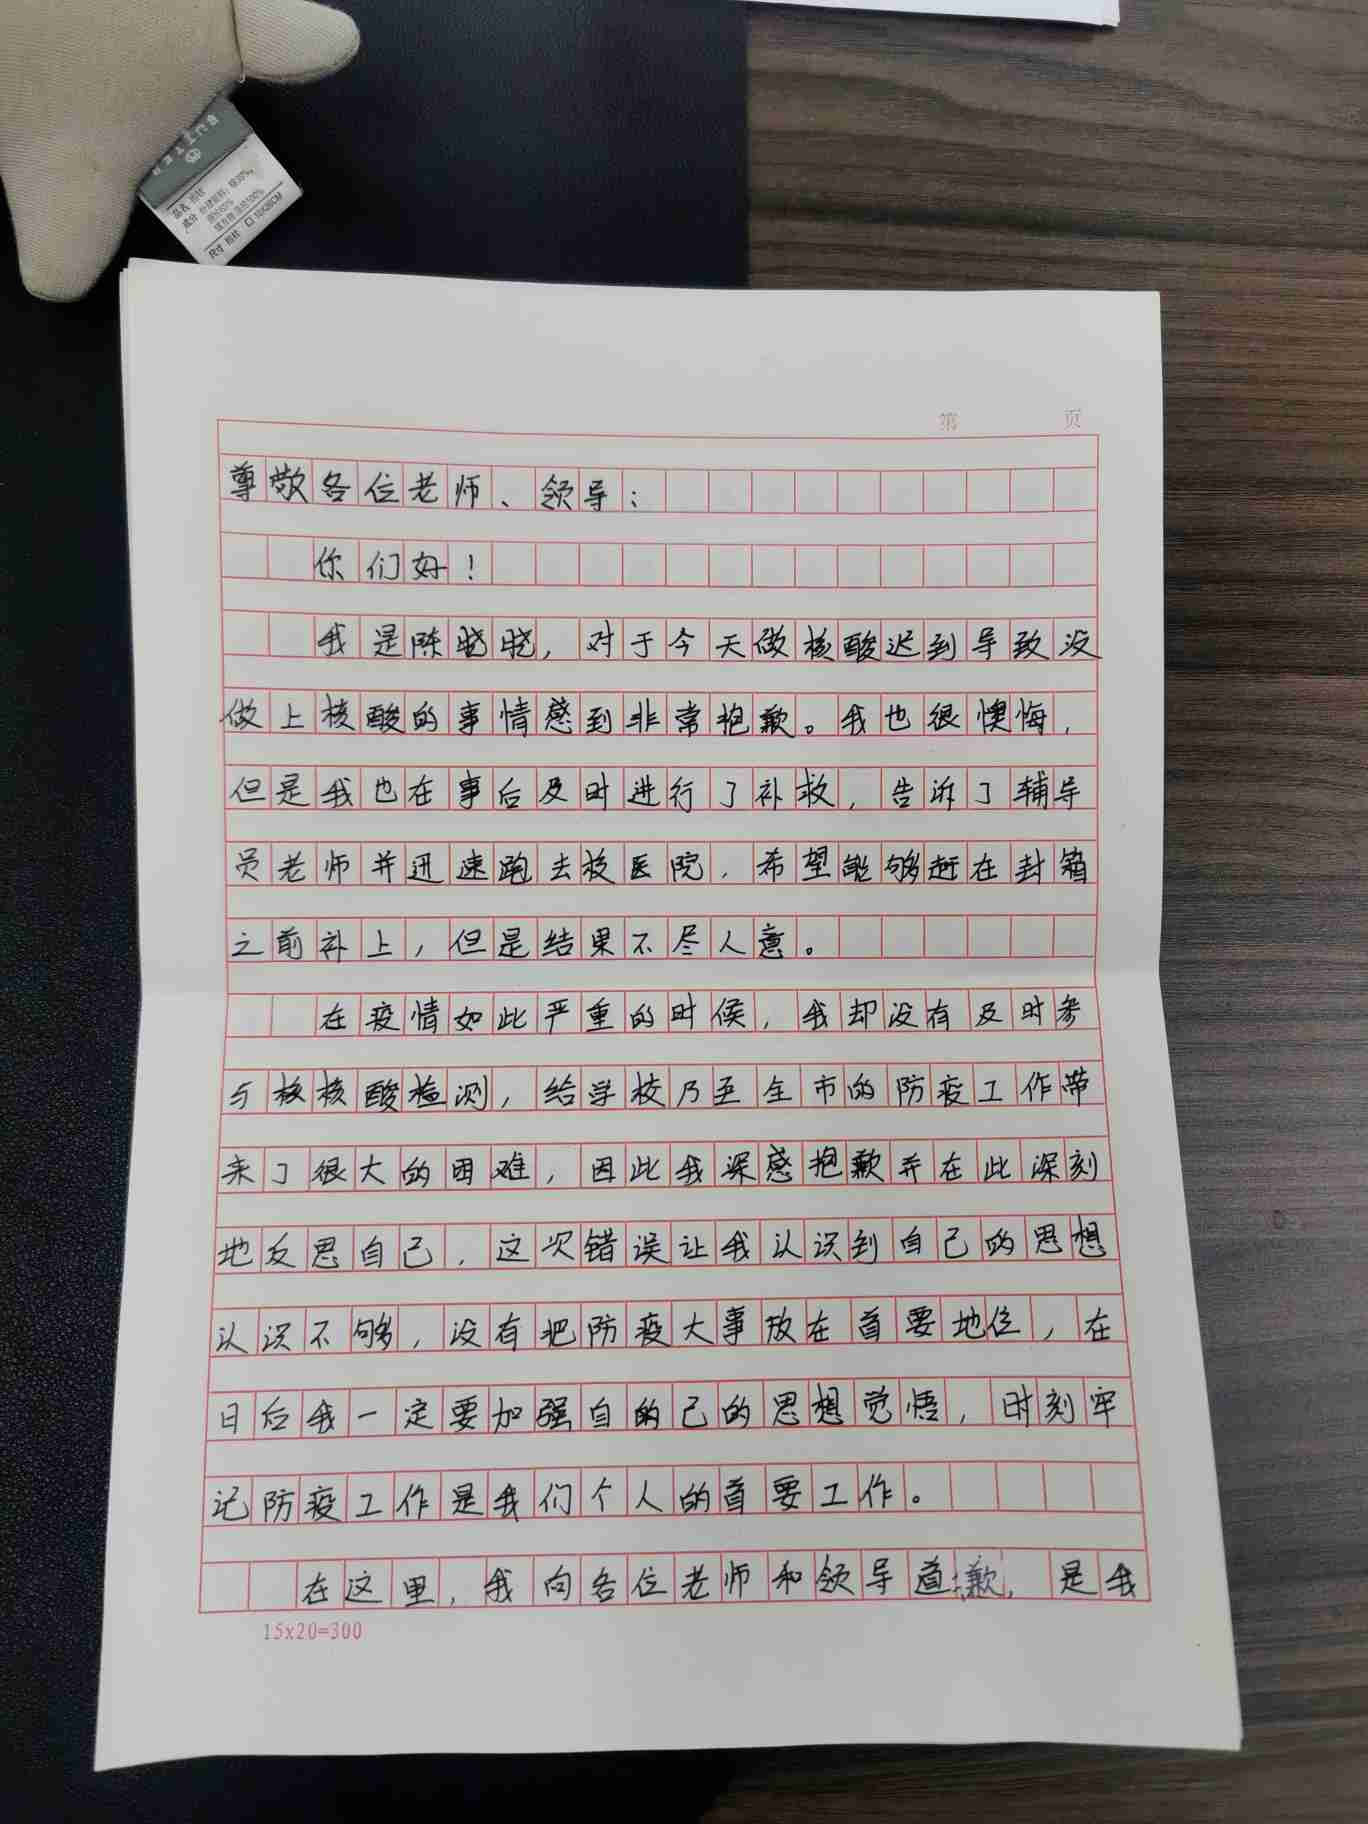 品名 抱枕
尺寸 抱枕 □ 10X08CM
第 页
尊敬各位老师、领导：
你们好！
我是陈晓晓，对于今天做核酸迟到导致没
做上核酸的事情感到非常抱歉。我也很懊悔，
但是我也在事后及时进行了补救，告诉了辅导
员老师并迅速跑去校医院，希望能够赶在封箱
之前补上，但是结果不尽人意。
在疫情如此严重的时候，我却没有及时参
与核核酸检测，给学校乃至全市的防疫工作带
来了很大的困难，因此我深感抱歉并在此深刻
地反思自己，这次错误让我认识到自己的思想
认识不够，没有把防疫大事放在首要地位，在
日后我一定要加强自的己的思想觉悟，时刻牢
记防疫工作是我们个人的首要工作。
在这里，我向各位老师和领导道歉，是我
15x20=300